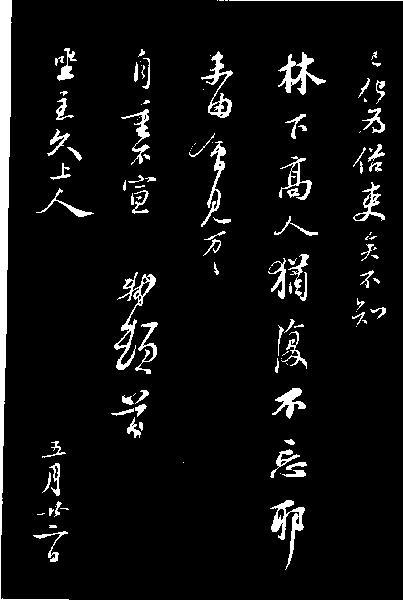 已化为俗吏矣不知
林下高人猶復不忘耶
未由會見万々
自重不宣　軾頓首
坐主久上人
五月廿二日